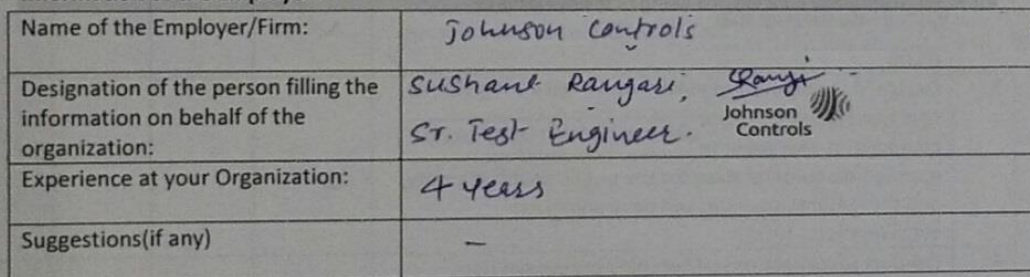 Name of the Employer/Firm:
Johnson Controls
Designation of the person filling the
information on behalf of the
organization:
Sushant Rangari,
Sr. Test Engineer.
Johnson
Controls
Experience at your Organization:
4 years
Suggestions(if any)
–